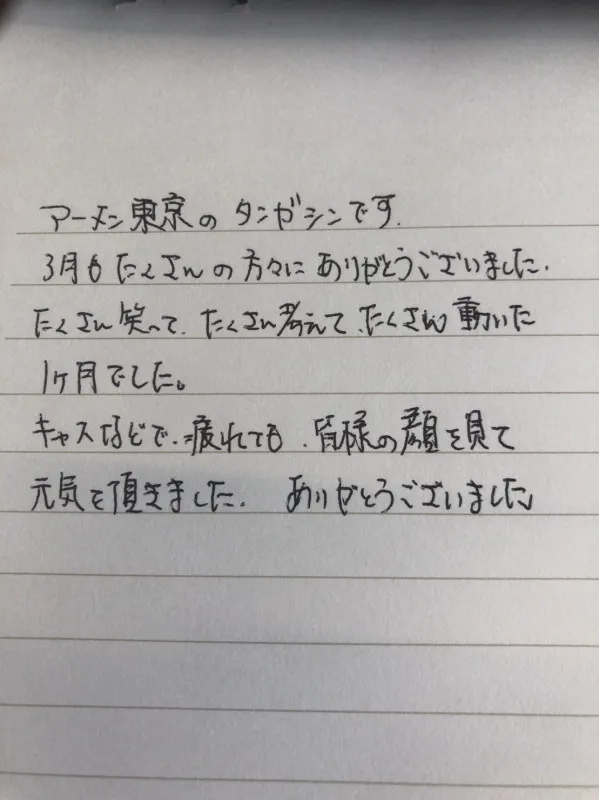 アーメン東京のタンガシンです.
3月もたくさんの方々にありがとうございました.
たくさん笑って.たくさん考えて.たくさん動いた
1ヶ月でした。
キャスなどで.疲れても.皆様の顔を見て
元気を頂きました. ありがとうございました